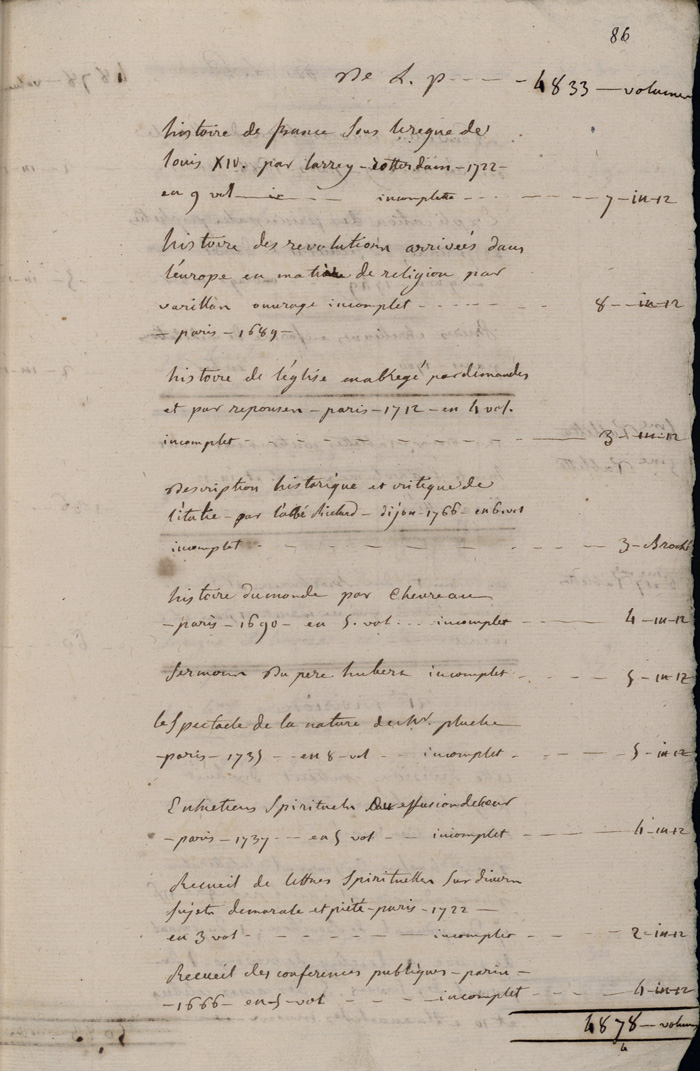 86
De L. p - - - - - 4833 - volumes
histoire de france sous le regne de
louis XIV. par larrey - rotterdam - 1722 -
en 9 vol - incomplette - - - - - 7 - in-12
histoire des revolutions arriveés dans
l'europe en matiere de religion par
varillan ouvrage incomplet - - - - - 8 - in-12
- paris - 1689 -
histoire de l'église en abregé par demandes
et par reponses - paris - 1712 - en 4 vol.
incomplet - - - - - 3 - in-12
Description historique et critique de
l'italie - par l'abbé Richard - dijon - 1766 - en 6 vol
incomplet - - - - - 3 - Broché
histoire du monde par Chevreau
- paris - 1690 - en 5. vol. . . incomplet - - - - 4 - in-12
Sermons du pere hubert incomplet - - - - 5 - in-12
le Spectacle de la nature de Mr. pluche
- paris - 1735 - - en 8 - vol - incomplet - - - - 5 - in-12
Entretiens Spirituels ou effusion de coeur
- paris - 1737 - - en 5 vol - - incomplet - - - - 4 - in-12
Recueil de lettres Spirituelles Sur divers
Sujets de morale et piété - paris - 1722 -
en 3 vol - - - - - incomplet - - - - 2 - in-12
Recueil des conferences publiques - paris -
- 1666 - en 5 - vol - - - incomplet - - - - 4 - in-12
4878 - volum